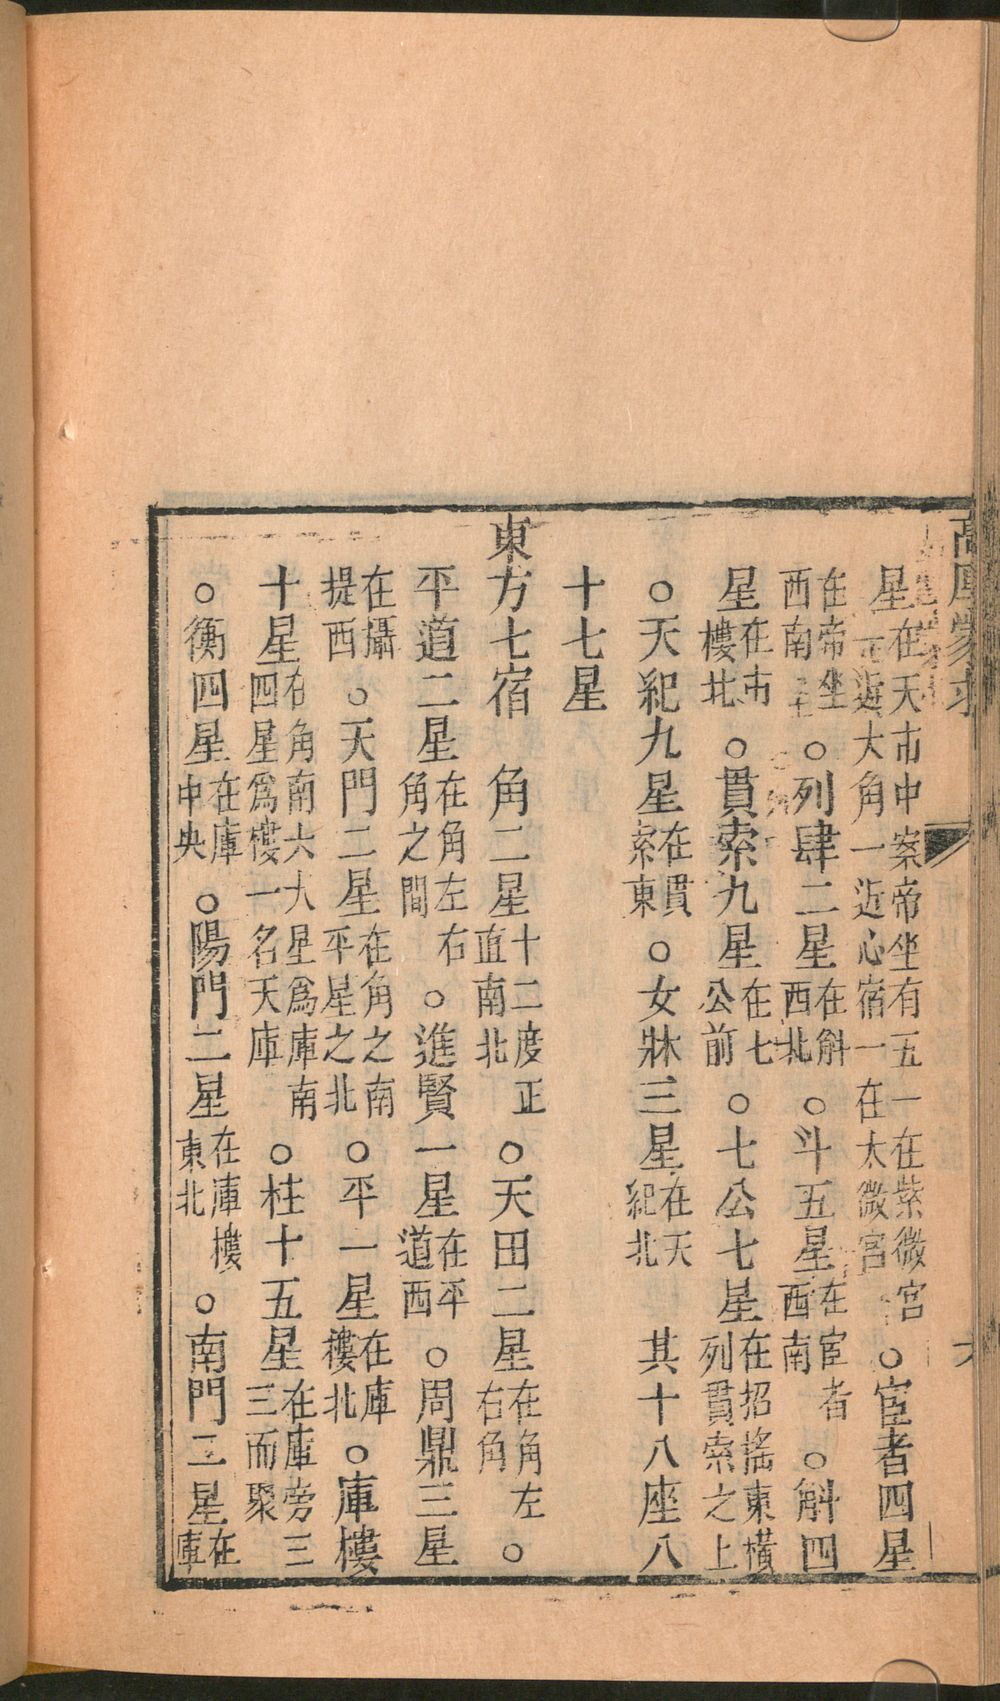 高厚蒙求
星在天市中案帝坐有五一在紫微宮一近大角一近心宿一在太微宮○宦者四星
在帝坐西南○列肆二星在斛西北○斗五星在宦者西南○斛四
星在市樓北○貫索九星在七公前○七公七星在招搖東橫列貫索之上
○天紀九星在貫索東○女牀三星在天紀北 其十八座八
十七星
東方七宿 角二星十二度正直南北○天田二星在角左右角○
平道二星在角左右角之間○進賢一星在平道西○周鼎三星
在攝提西○天門二星在角之南平星之北○平一星在庫樓北○庫樓
十星在角南六大星爲庫南四星爲樓一名天庫○柱十五星在庫旁三三而聚
○衡四星在庫中央○陽門二星在庫樓東北○南門二星在庫